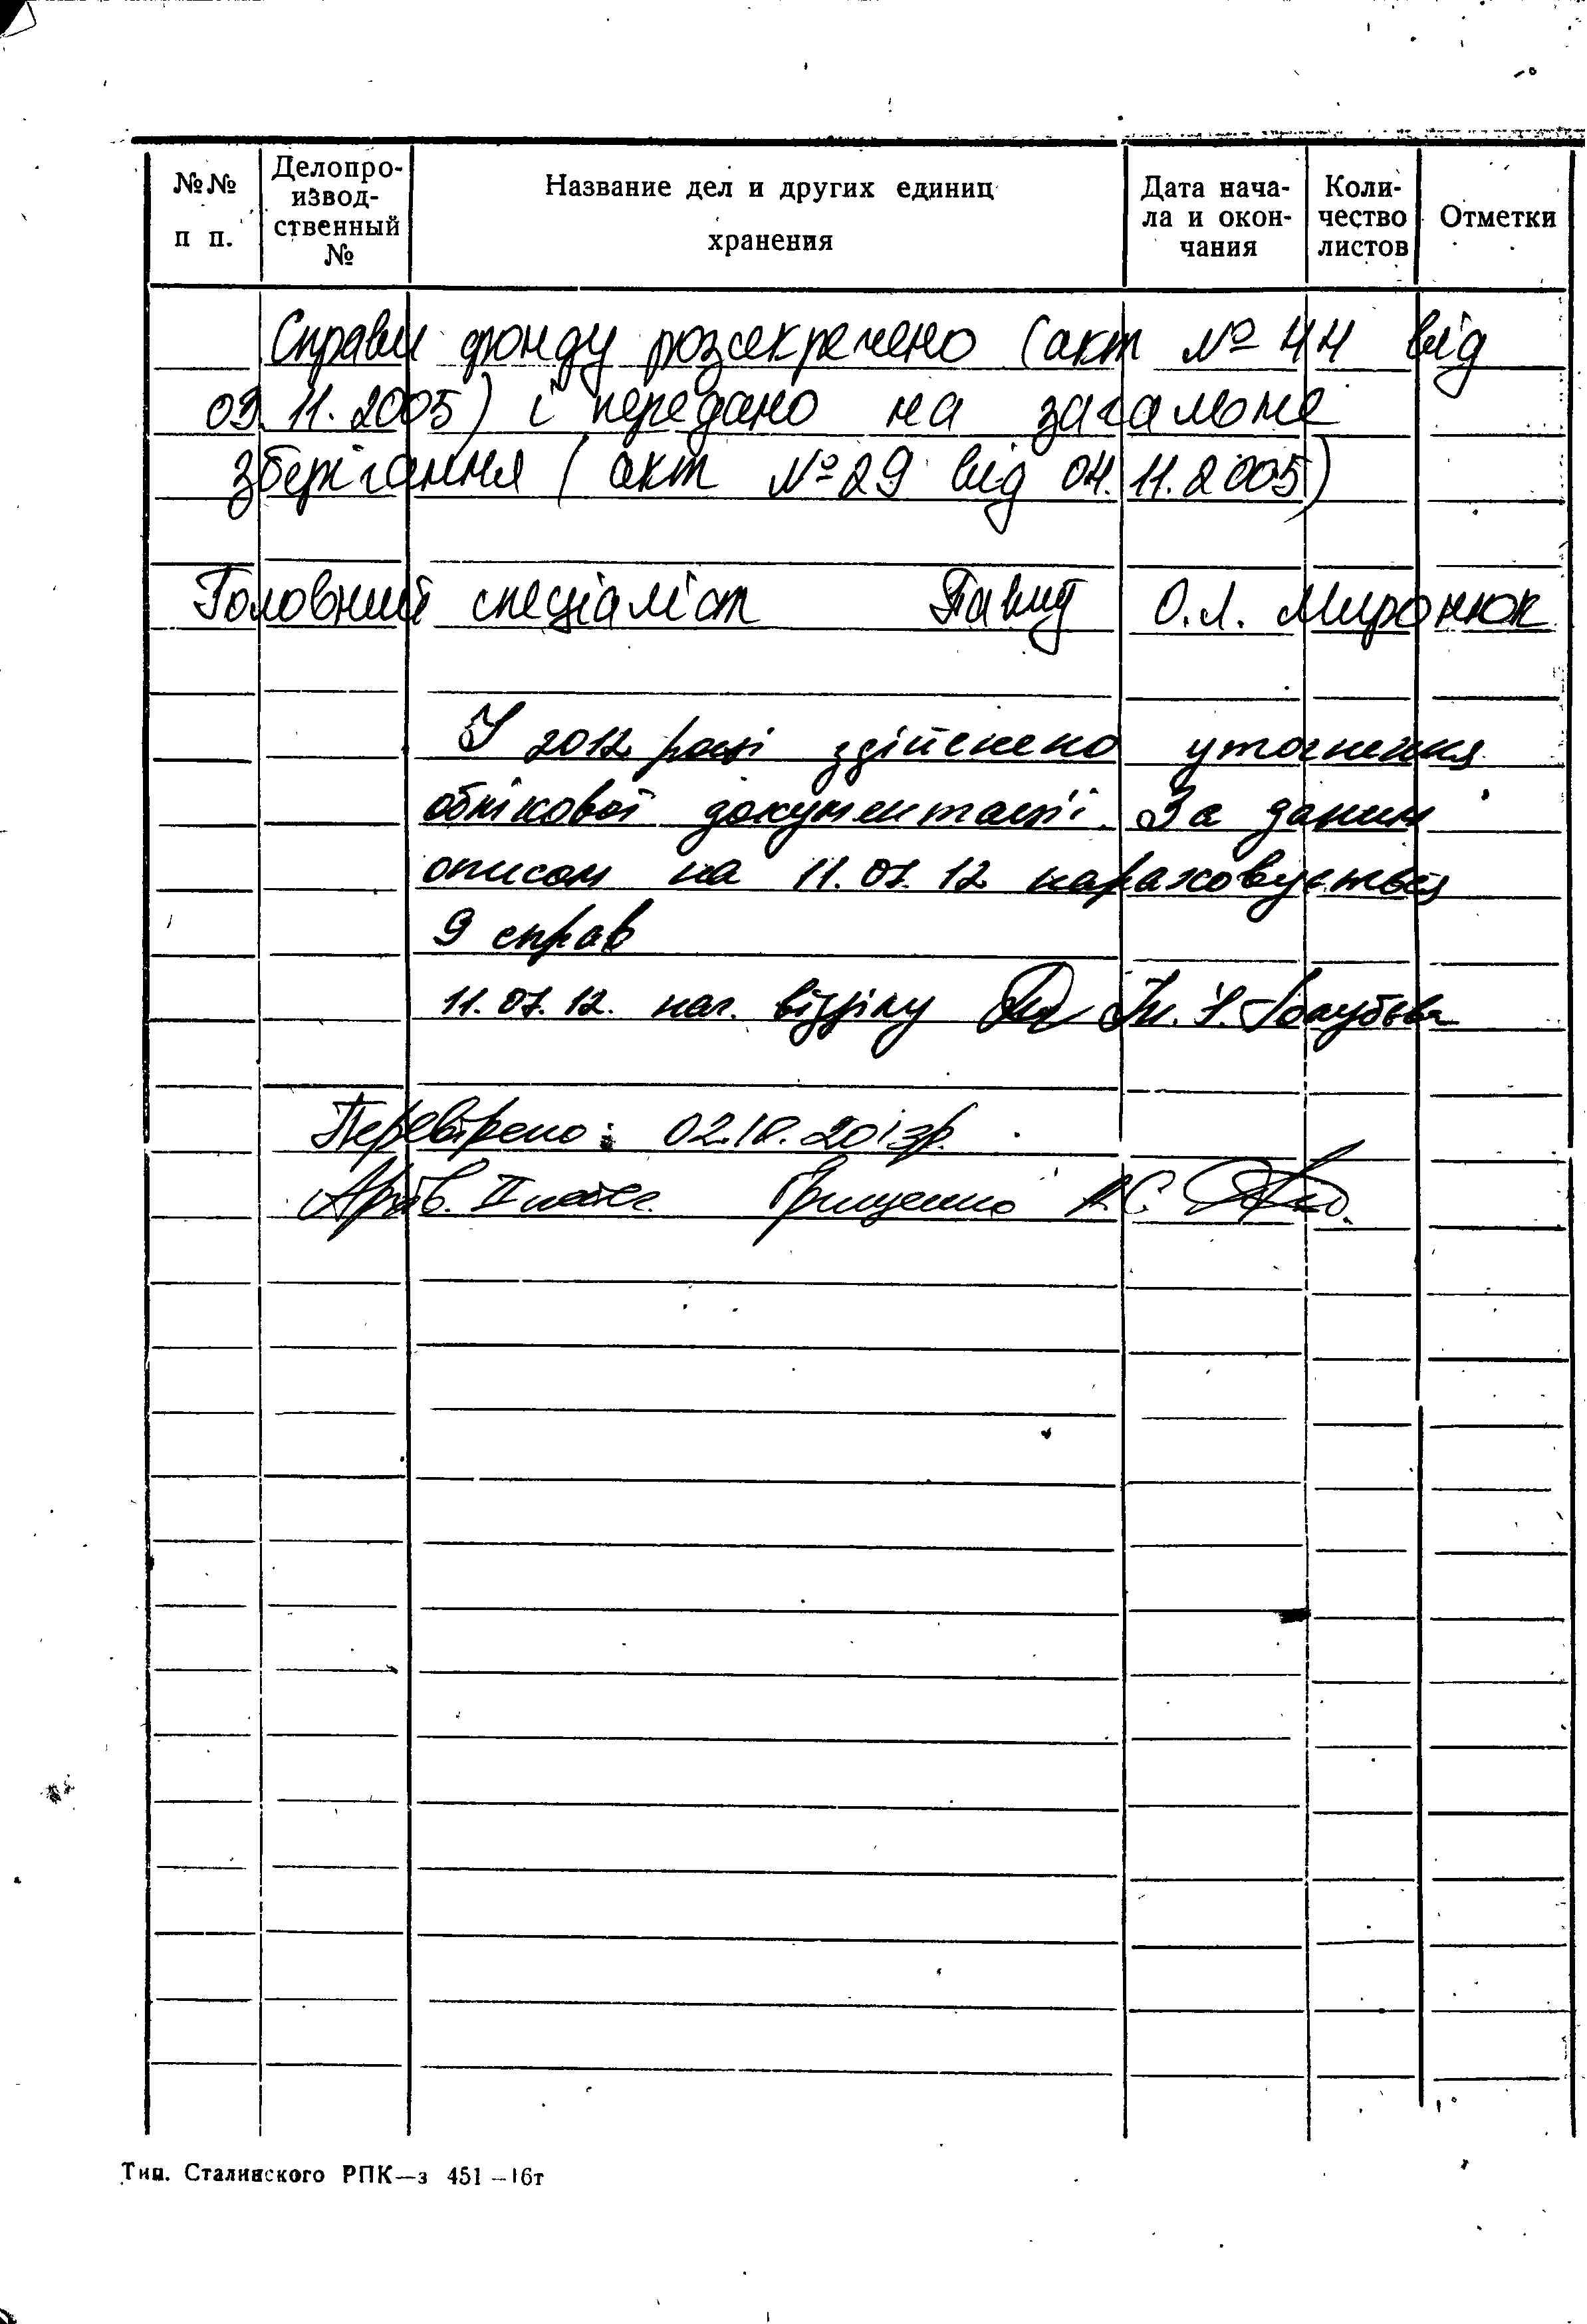 №№ п п.
Делопро-
извод-
ственный
№
Название дел и других единиц
хранения
Дата нача-
ла и окон-
чания
Коли-
чество
листов
Отметки
Справи фонду розсекречено (акт № 44 від
03.11.2005) і передано на загальне
зберігання (акт № 29 від 04.11.2005)
Головний спеціаліст О.Л. Миронюк
У 2012 році здійснено уточнення
облікової документації. За даним
описом на 11.07.12 нараховується
9 справ
11.07.12. нач. відділу Голубєва
Перевірено: 02.10.2013р.
Архів. II катег. Грищенко А.С.
Тип. Сталинского РПК—з 451—16т